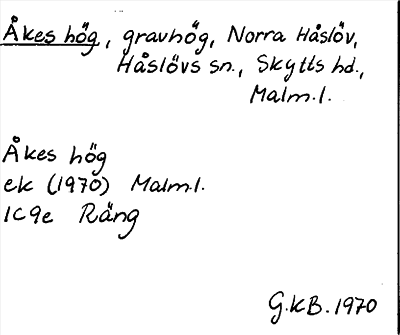 Åkes hög, gravhög, Norra Håslöv,
Håslövs sn., Skytts hd.,
Malm.l.
Åkes hög
ek (1970) Malm.l.
1C9e Räng
G.KB. 1970